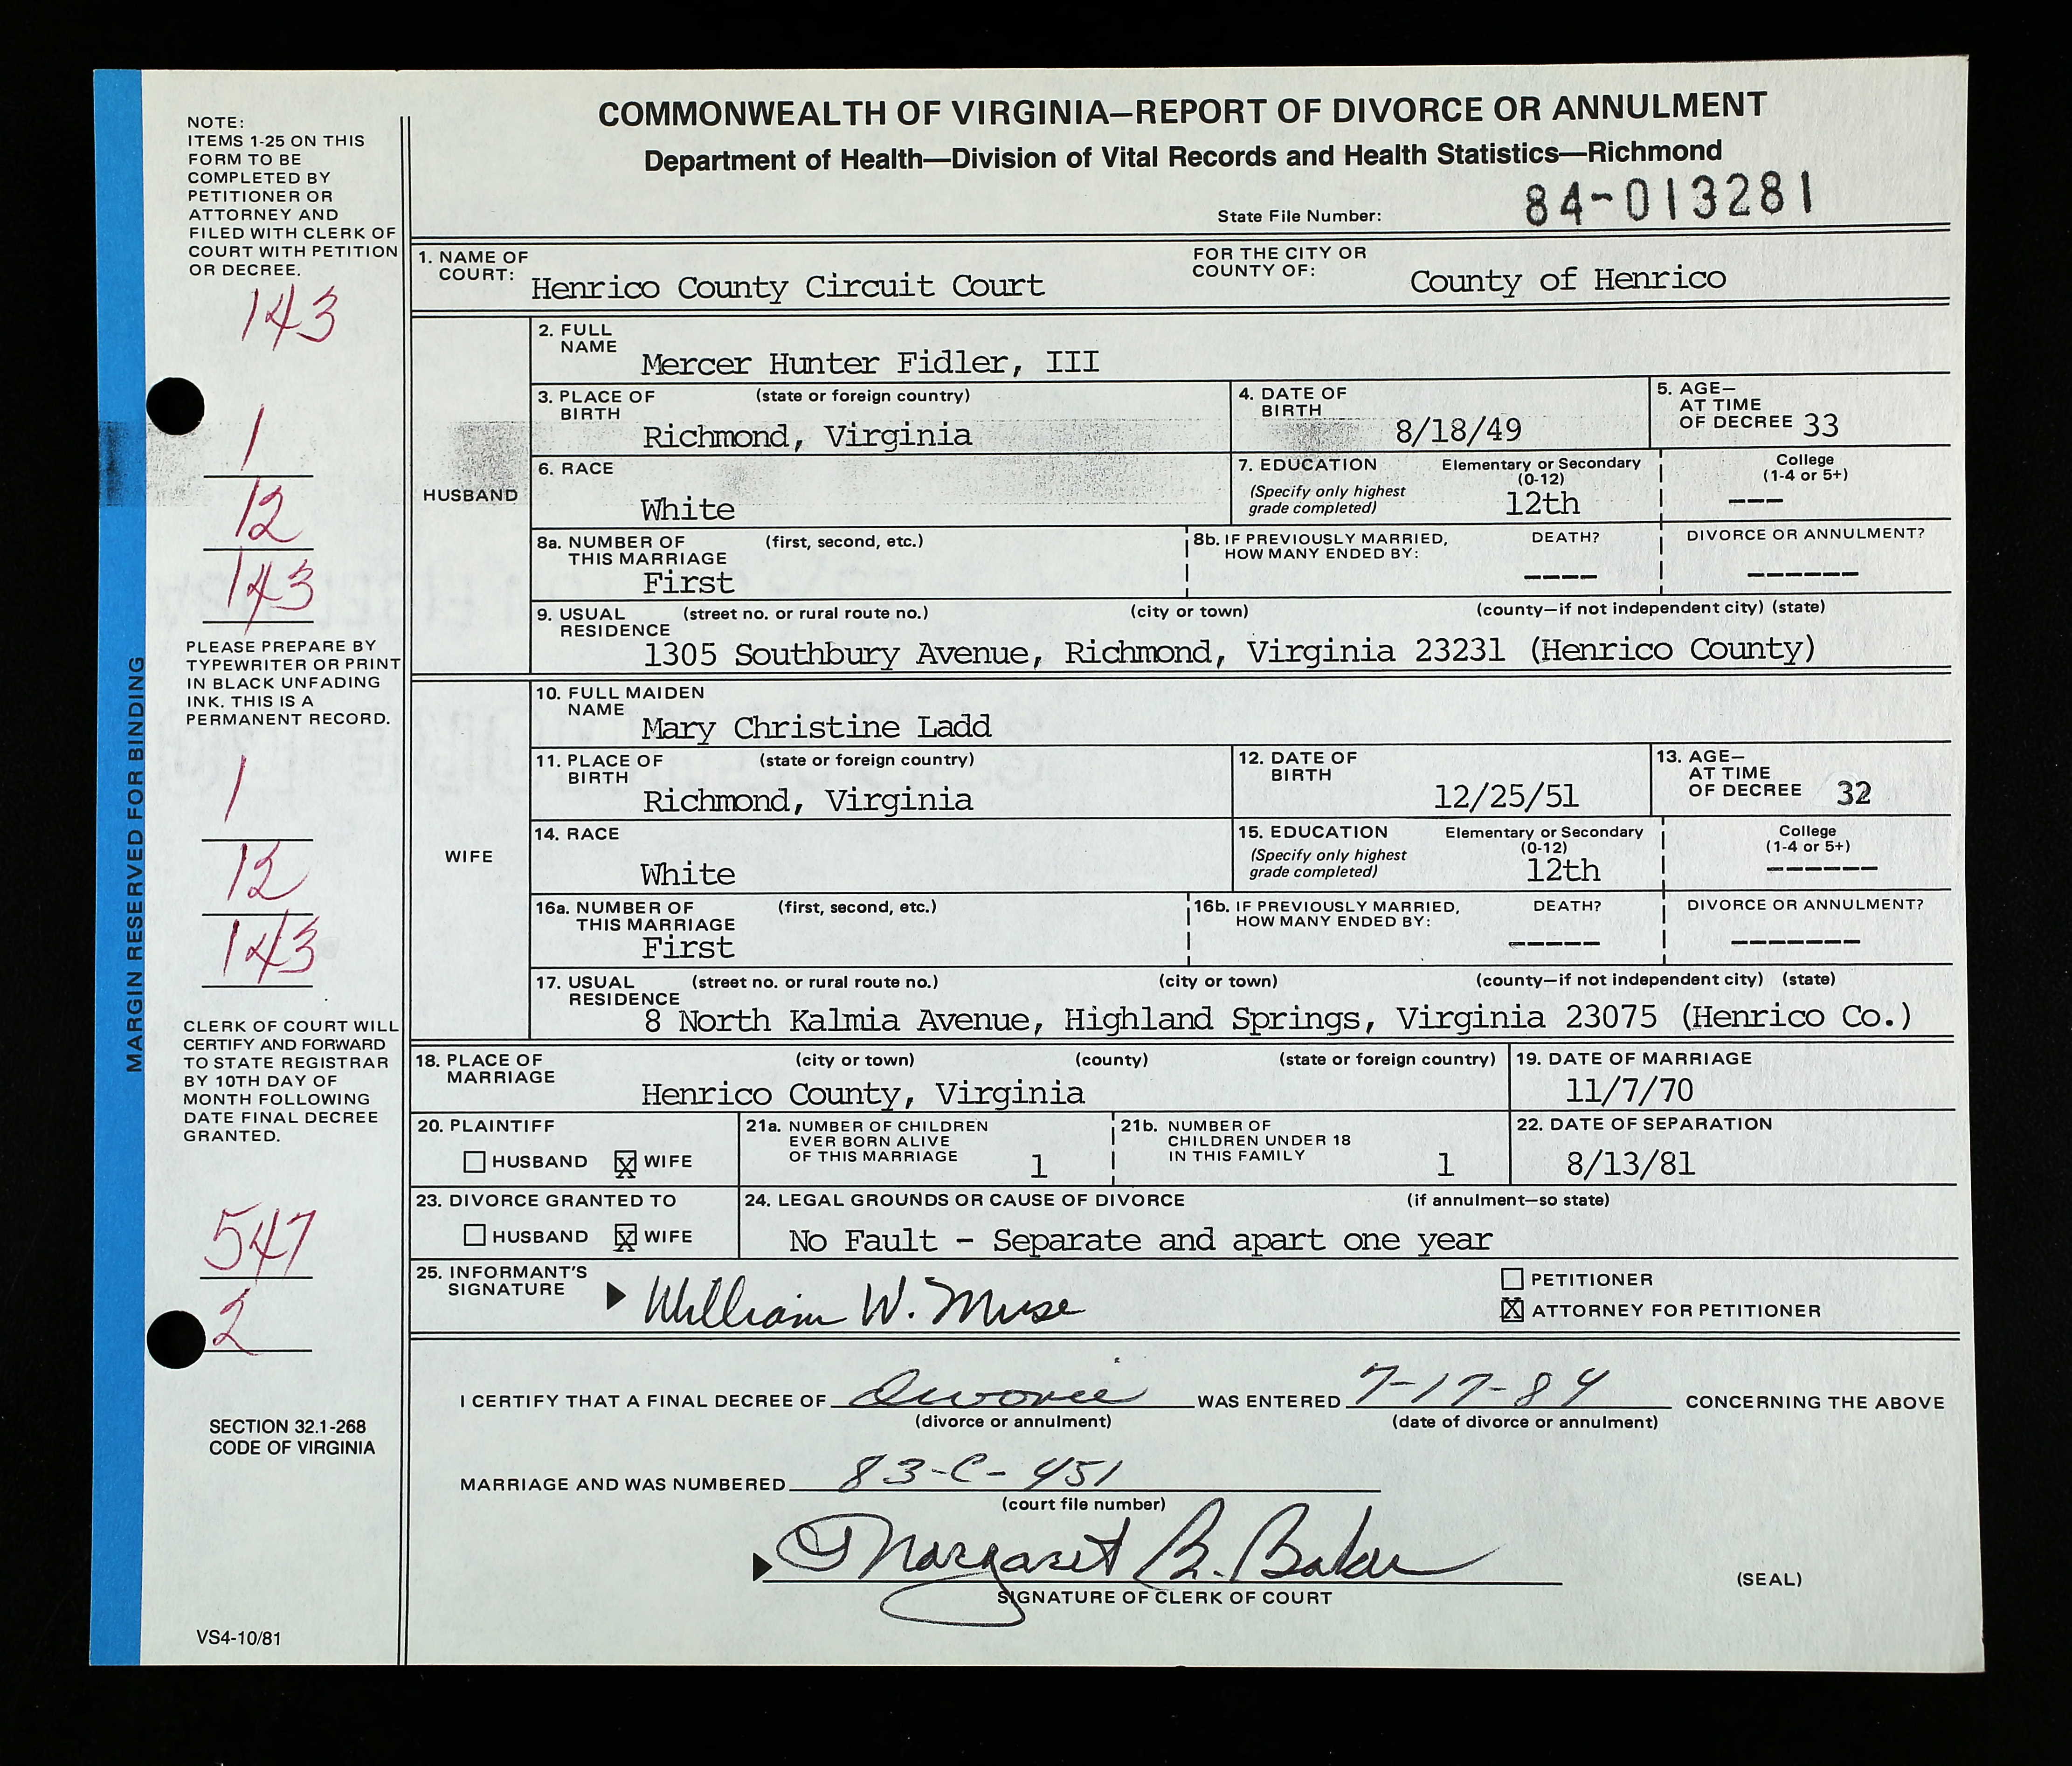 COMMONWEALTH OF VIRGINIA—REPORT OF DIVORCE OR ANNULMENT
Department of Health—Division of Vital Records and Health Statistics—Richmond
State File Number: 84-013281
NOTE:
ITEMS 1-25 ON THIS
FORM TO BE
COMPLETED BY
PETITIONER OR
ATTORNEY AND
FILED WITH CLERK OF
COURT WITH PETITION
OR DECREE.
143
1
12
143
PLEASE PREPARE BY
TYPEWRITER OR PRINT
IN BLACK UNFADING
INK. THIS IS A
PERMANENT RECORD.
1
12
143
CLERK OF COURT WILL
CERTIFY AND FORWARD
TO STATE REGISTRAR
BY 10TH DAY OF
MONTH FOLLOWING
DATE FINAL DECREE
GRANTED.
547
2
SECTION 32.1-268
CODE OF VIRGINIA
VS4-10/81
MARGIN RESERVED FOR BINDING
1. NAME OF COURT: Henrico County Circuit Court FOR THE CITY OR COUNTY OF: County of Henrico
HUSBAND
2. FULL NAME Mercer Hunter Fidler, III
3. PLACE OF BIRTH (state or foreign country) Richmond, Virginia
4. DATE OF BIRTH 8/18/49
5. AGE— AT TIME OF DECREE 33
6. RACE White
7. EDUCATION (Specify only highest grade completed) Elementary or Secondary (0-12) 12th College (1-4 or 5+) ---
8a. NUMBER OF THIS MARRIAGE (first, second, etc.) First
8b. IF PREVIOUSLY MARRIED, HOW MANY ENDED BY: DEATH? ---- DIVORCE OR ANNULMENT? ------
9. USUAL RESIDENCE (street no. or rural route no.) (city or town) (county—if not independent city) (state)
1305 Southbury Avenue, Richmond, Virginia 23231 (Henrico County)
WIFE
10. FULL MAIDEN NAME Mary Christine Ladd
11. PLACE OF BIRTH (state or foreign country) Richmond, Virginia
12. DATE OF BIRTH 12/25/51
13. AGE— AT TIME OF DECREE 32
14. RACE White
15. EDUCATION (Specify only highest grade completed) Elementary or Secondary (0-12) 12th College (1-4 or 5+) ------
16a. NUMBER OF THIS MARRIAGE (first, second, etc.) First
16b. IF PREVIOUSLY MARRIED, HOW MANY ENDED BY: DEATH? ----- DIVORCE OR ANNULMENT? -------
17. USUAL RESIDENCE (street no. or rural route no.) (city or town) (county—if not independent city) (state)
8 North Kalmia Avenue, Highland Springs, Virginia 23075 (Henrico Co.)
18. PLACE OF MARRIAGE (city or town) (county) (state or foreign country) Henrico County, Virginia
19. DATE OF MARRIAGE 11/7/70
20. PLAINTIFF HUSBAND X WIFE
21a. NUMBER OF CHILDREN EVER BORN ALIVE OF THIS MARRIAGE 1
21b. NUMBER OF CHILDREN UNDER 18 IN THIS FAMILY 1
22. DATE OF SEPARATION 8/13/81
23. DIVORCE GRANTED TO HUSBAND X WIFE
24. LEGAL GROUNDS OR CAUSE OF DIVORCE (if annulment—so state)
No Fault - Separate and apart one year
25. INFORMANT'S SIGNATURE William W. Muse
PETITIONER
X ATTORNEY FOR PETITIONER
I CERTIFY THAT A FINAL DECREE OF Divorce WAS ENTERED 7-17-84 CONCERNING THE ABOVE
(divorce or annulment) (date of divorce or annulment)
MARRIAGE AND WAS NUMBERED 83-C-451
(court file number)
Margaret B. Baker
SIGNATURE OF CLERK OF COURT (SEAL)